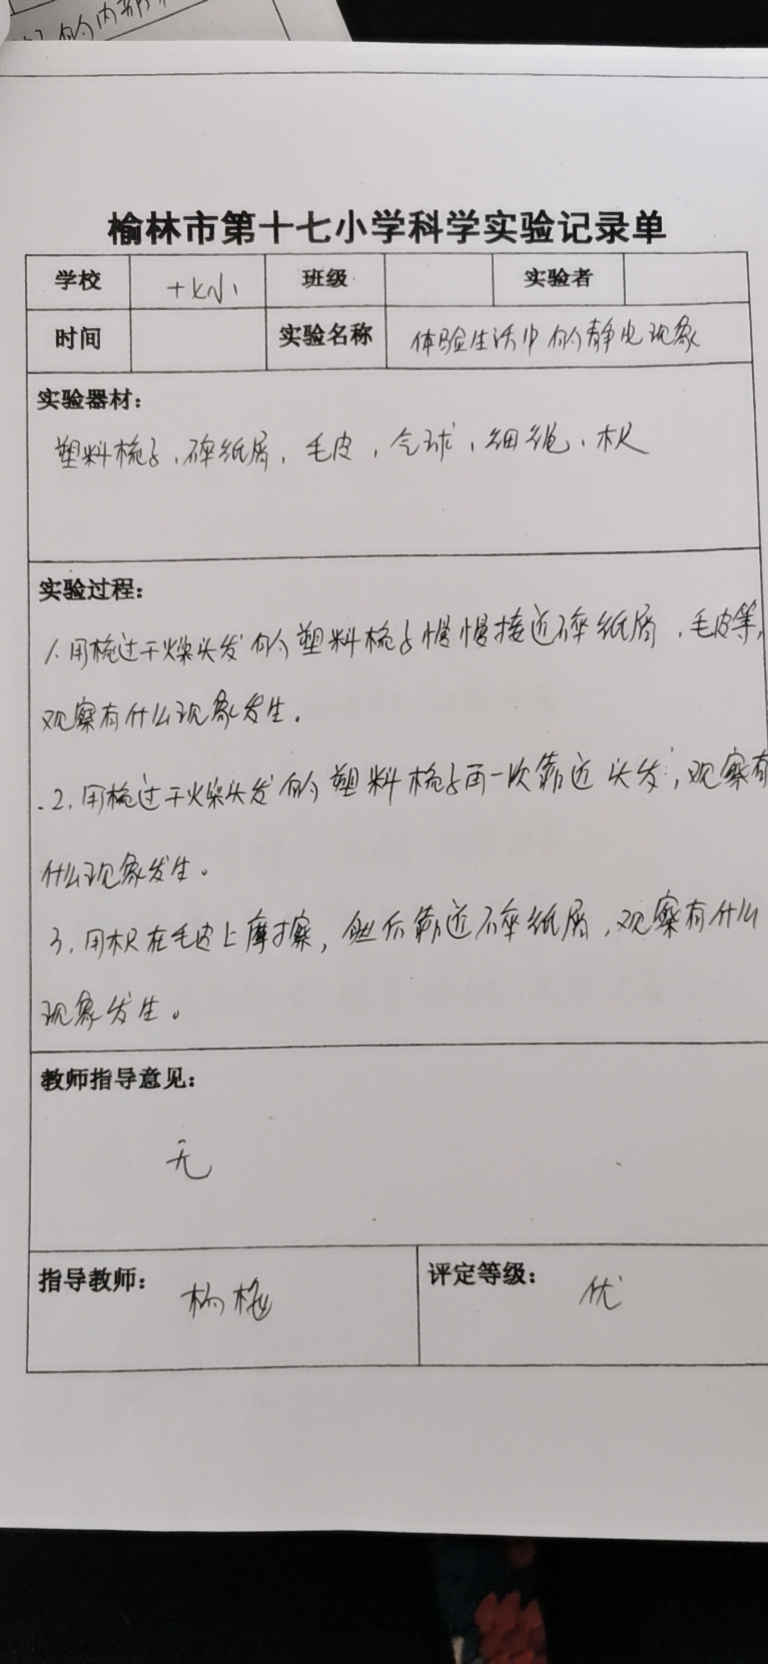 的内部
榆林市第十七小学科学实验记录单
学校 十七小 班级 实验者
时间 实验名称 体验生活中的静电现象
实验器材：
塑料梳子、碎纸屑、毛皮、气球、细绳、木尺
实验过程：
1. 用梳过干燥头发的塑料梳子慢慢接近碎纸屑、毛皮等，
观察有什么现象发生。
2. 用梳过干燥头发的塑料梳子再一次靠近头发，观察有
什么现象发生。
3. 用木尺在毛皮上摩擦，然后靠近碎纸屑，观察有什么
现象发生。
教师指导意见：
无
指导教师： 评定等级： 优